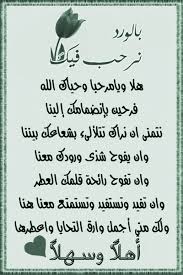 بالورد
نرحب فيك
هلا ويامرحبا وحياك الله
فرحين بإنضمامك إلينا
نتمنى ان نراك تتلألئ بشعاعك بيننا
وان يفوح شذى ورودك معنا
وان تفوح رائحة قلمك العطر
وان تفيد وتستفيد وتستمتع معنا هنا
ولك مني أجمل وارق التحايا واعطرها
أهلاً وسهلاً